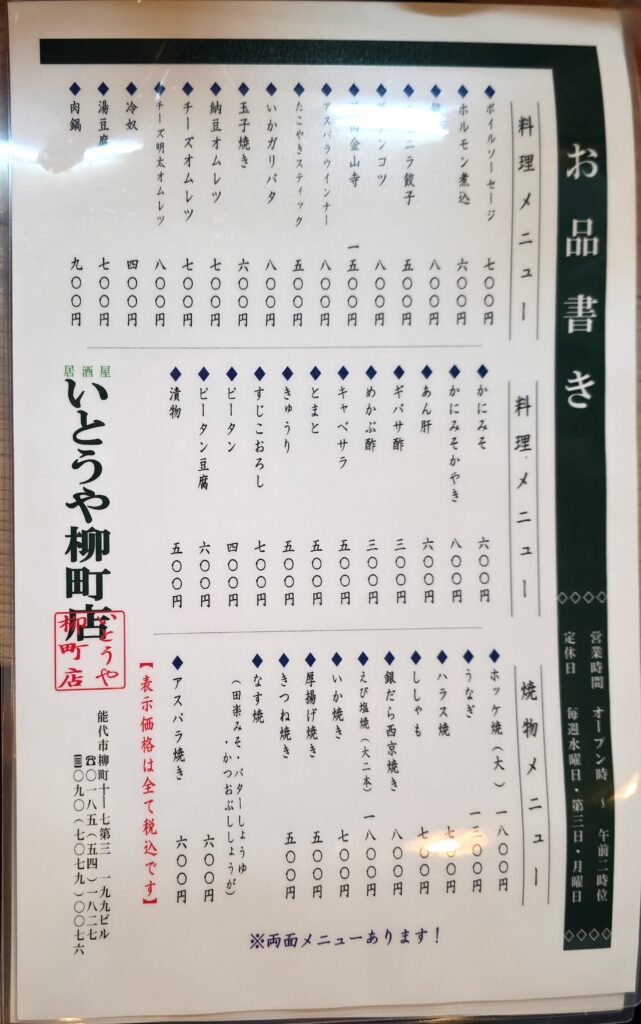 お品書き
営業時間 オープン時 ～ 午前二時位
定休日 毎週水曜日・第三日・月曜日
料理メニュー
ボイルソーセージ 七〇〇円
ホルモン煮込 六〇〇円
八〇〇円
ニラ餃子 五〇〇円
ンコツ 八〇〇円
金山寺 一五〇〇円
アスパラウインナー 八〇〇円
たこやきスティック 五〇〇円
いかガリバタ 八〇〇円
玉子焼き 六〇〇円
納豆オムレツ 七〇〇円
チーズオムレツ 七〇〇円
チーズ明太オムレツ 八〇〇円
冷奴 四〇〇円
湯豆腐 七〇〇円
肉鍋 九〇〇円
料理メニュー
かにみそ 六〇〇円
かにみそかやき 八〇〇円
あん肝 六〇〇円
ギバサ酢 三〇〇円
めかぶ酢 三〇〇円
キャベサラ 五〇〇円
とまと 五〇〇円
きゅうり 五〇〇円
すじこおろし 七〇〇円
ピータン 四〇〇円
ピータン豆腐 六〇〇円
漬物 五〇〇円
焼物メニュー
ホッケ焼(大) 一八〇〇円
うなぎ 一三〇〇円
ハラス焼 七〇〇円
ししゃも 七〇〇円
銀だら西京焼き 八〇〇円
えび塩焼(大二本) 一八〇〇円
いか焼き 七〇〇円
厚揚げ焼き 五〇〇円
きつね焼き 五〇〇円
なす焼
(田楽みそ・バターしょうゆ
・かつおぶししょうが) 六〇〇円
アスパラ焼き 六〇〇円
【表示価格は全て税込です】
※両面メニューあります！
居酒屋
いとうや柳町店
いとうや
柳町店
能代市柳町十ー七第三 一九九ビル
☎〇一八五(五四)一八二七
〇九〇(七〇七九)〇〇七六